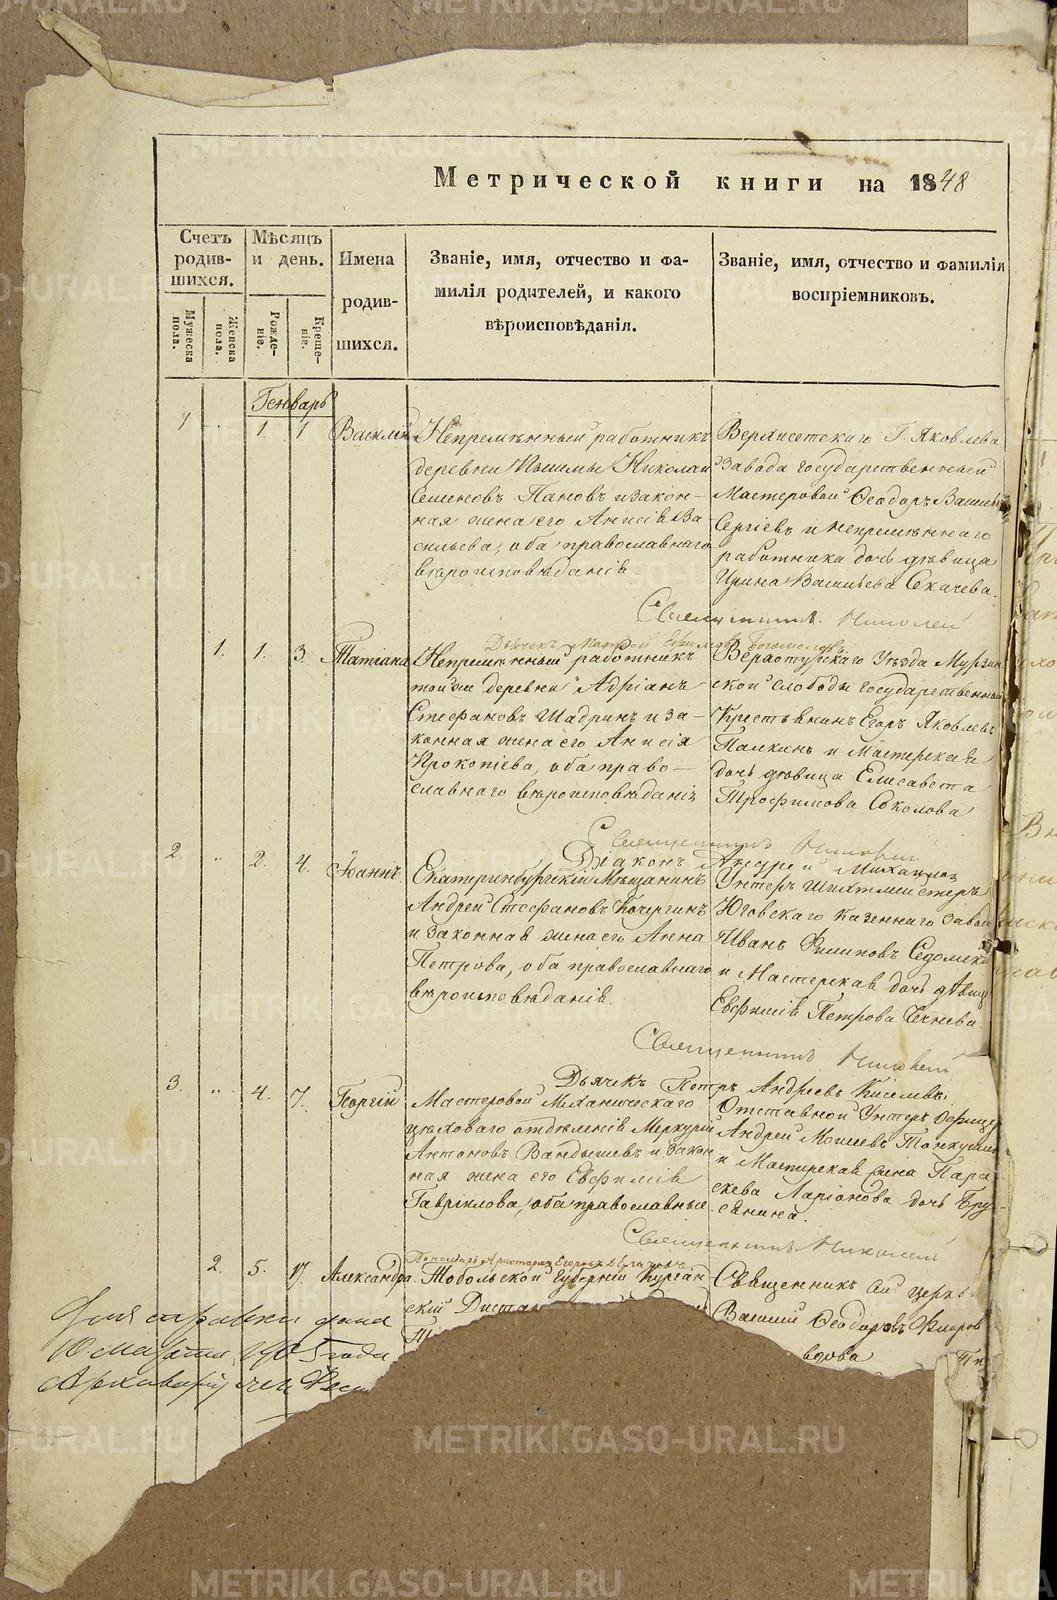 Метрической книги на 1848
Счетъ родив-шихся.
Мужеска пола.
Женска пола.
Мѣсяцъ и день.
Рожде-ніе.
Креще-ніе.
Имена
родив-
шихся.
Званіе, имя, отчество и фа-
милія родителей, и какого
вѣроисповѣданія.
Званіе, имя, отчество и фамилія
воспріемниковъ.
Генварь
1 1 1 Василій
Непремѣнный работникъ
деревни Пышмы Николай
Семеновъ Пановъ и закон-
ная жена его Анисія Ва-
сильева, оба православнаго
вѣроисповѣданія.
Верхисетскаго Г. Яковлева
Завода государственный
Мастеровой Ѳеодоръ Васильевъ
Сергѣевъ и непремѣннаго
работника дочь дѣвица
Ирина Васильева Секачева.
Священникъ Николай
1. 1. 3. Татіана
Непремѣнный работникъ
той же деревни Адріанъ
Стефановъ Шадринъ и за-
конная жена его Анисія
Прокопіева, оба право-
славнаго вѣроисповѣданія
Верхотурскаго Уѣзда Мурзин-
ской слободы государственный
Крестьянинъ Егоръ Яковлевъ
Палкинъ и Мастерская
дочь дѣвица Елисавета
Трофимова Соколова
Священникъ Николай
Діаконъ Андрей
2. 2. 4. Іоаннъ
Екатеринбургскій Мѣщанинъ
Андрей Стефановъ Кочергинъ
и законная жена его Анна
Петрова, оба православнаго
вѣроисповѣданія.
Унтеръ Шихтмейстеръ
Юговскаго казеннаго завода
Иванъ Филиповъ
и Мастерская дочь дѣвица
Евфимія Петрова
Священникъ Николай
Дьячекъ Петръ Андреевъ Киселевъ.
3. 4. 7. Георгій
Мастеровой Механическаго
цѣховаго отдѣленія Меркурій
Антоновъ Вандышевъ и закон
ная жена его Евфимія
Гавріилова, оба православные.
Отставной Унтеръ Офицеръ
Андрей Моисеевъ
и Мастерская жена Пара-
скева Ларіонова дочь
Священникъ Николай
2. 5. 17. Александра.
Тобольской Губерніи Курган
скій
Священникъ
Василій Ѳеодоровъ
вдова
Для справки
10 Марта 1905 года